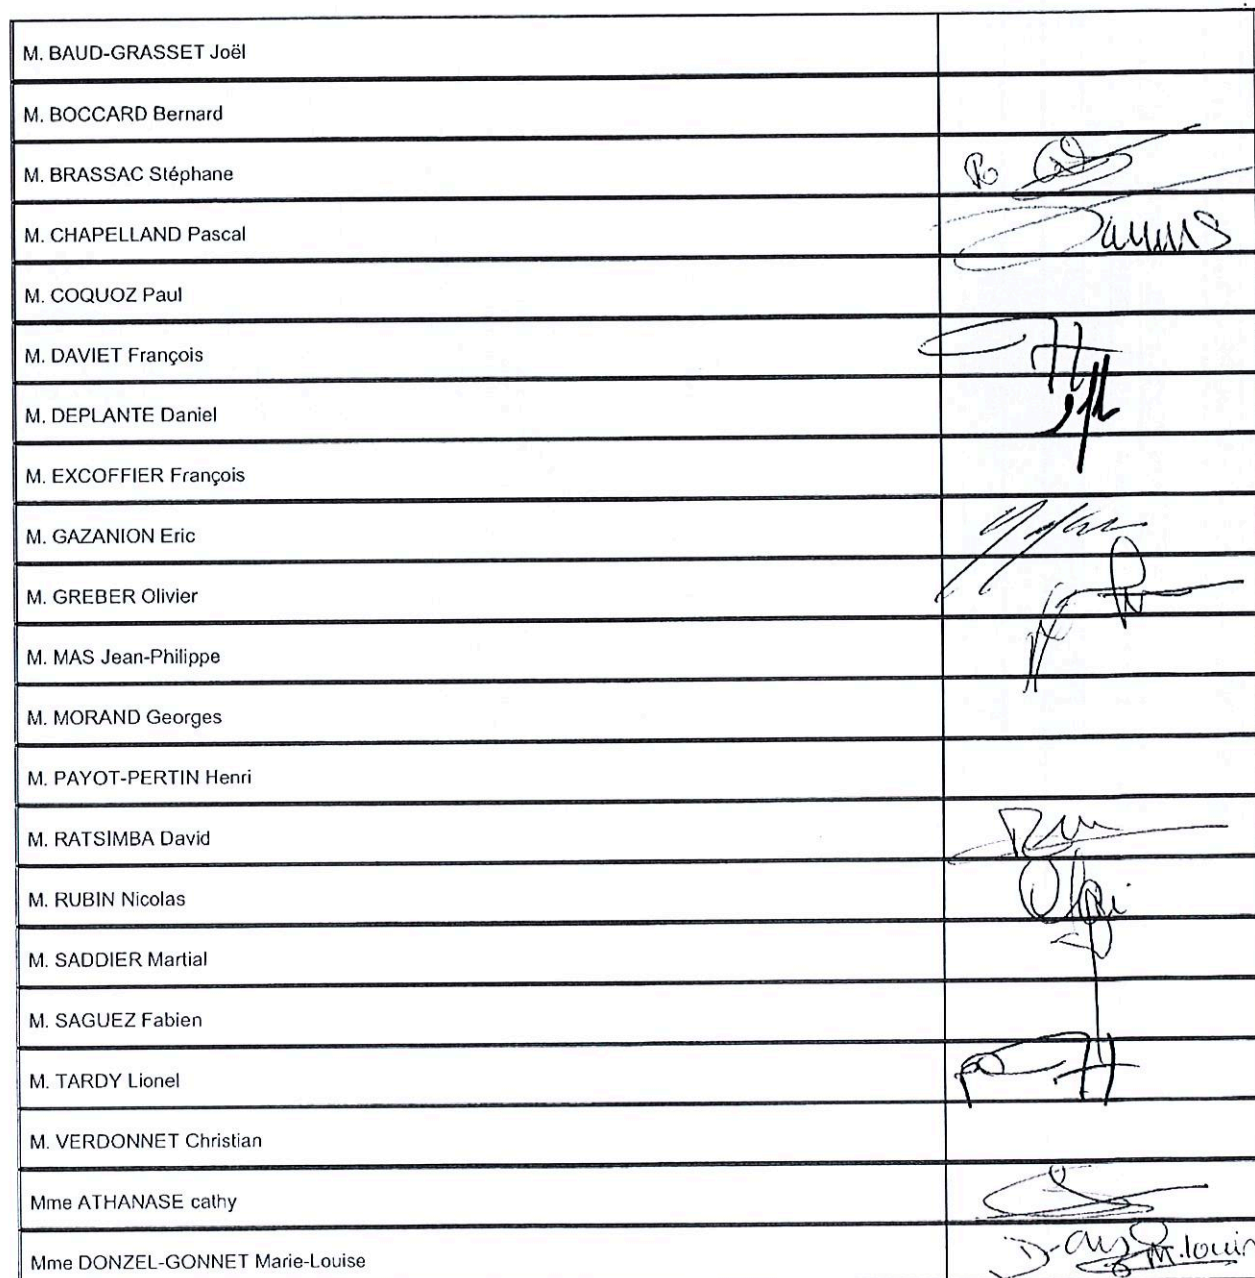 M. BAUD-GRASSET Joël
M. BOCCARD Bernard
M. BRASSAC Stéphane
M. CHAPELLAND Pascal
M. COQUOZ Paul
M. DAVIET François
M. DEPLANTE Daniel
M. EXCOFFIER François
M. GAZANION Eric
M. GREBER Olivier
M. MAS Jean-Philippe
M. MORAND Georges
M. PAYOT-PERTIN Henri
M. RATSIMBA David
M. RUBIN Nicolas
M. SADDIER Martial
M. SAGUEZ Fabien
M. TARDY Lionel
M. VERDONNET Christian
Mme ATHANASE cathy
Mme DONZEL-GONNET Marie-Louise